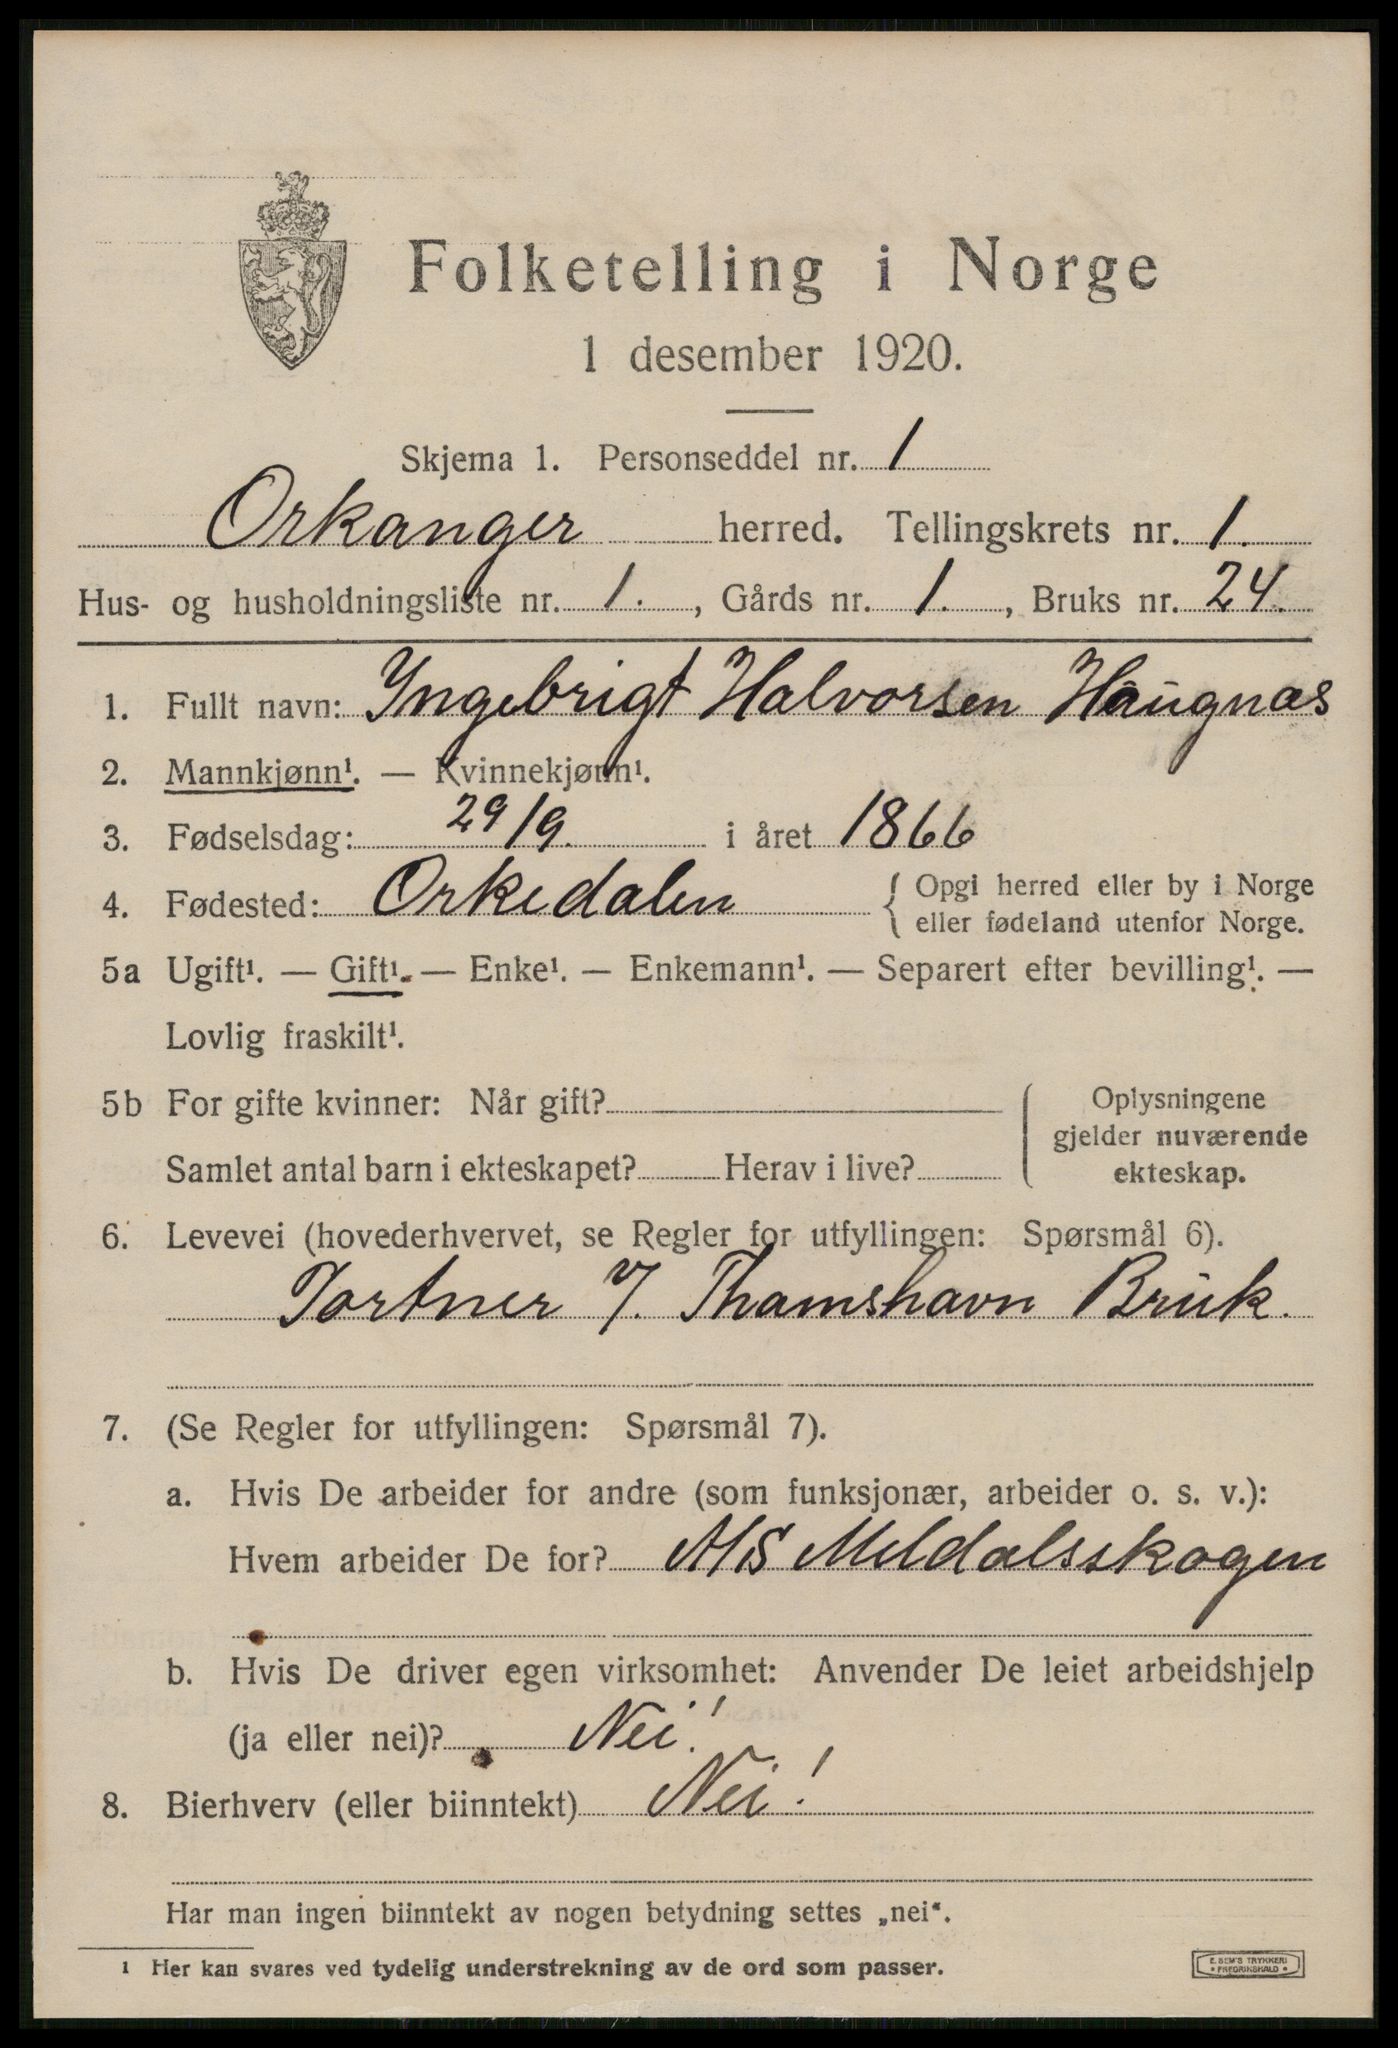 Folketelling i Norge
1 desember 1920.
Skjema 1. Personseddel nr. 1
Orkanger herred. Tellingskrets nr. 1.
Hus- og husholdningsliste nr. 1., Gårds nr. 1., Bruks nr. 24.
1. Fullt navn: Yngebrigt Halvorsen Haugnæs
2. Mannkjønn¹. — Kvinnekjønn¹.
3. Fødselsdag: 29/9. i året 1866
4. Fødested: Orkedalen { Opgi herred eller by i Norge
eller fødeland utenfor Norge.
5a Ugift¹. — Gift¹. — Enke¹. — Enkemann¹. — Separert efter bevilling¹. —
Lovlig fraskilt¹.
5b For gifte kvinner: Når gift?
Samlet antal barn i ekteskapet? Herav i live?
Oplysningene
gjelder nuværende
ekteskap.
6. Levevei (hovederhvervet, se Regler for utfyllingen: Spørsmål 6).
Tortner V. Thamshavn Bruk.
7. (Se Regler for utfyllingen: Spørsmål 7).
a. Hvis De arbeider for andre (som funksjonær, arbeider o. s. v.):
Hvem arbeider De for? A/S Meldalsskogen
b. Hvis De driver egen virksomhet: Anvender De leiet arbeidshjelp
(ja eller nei)? Nei!
8. Bierhverv (eller biinntekt) Nei!
Har man ingen biinntekt av nogen betydning settes „nei“.
¹ Her kan svares ved tydelig understrekning av de ord som passer.
E. SEM'S TRYKKERI
• FREDRIKSHALD •